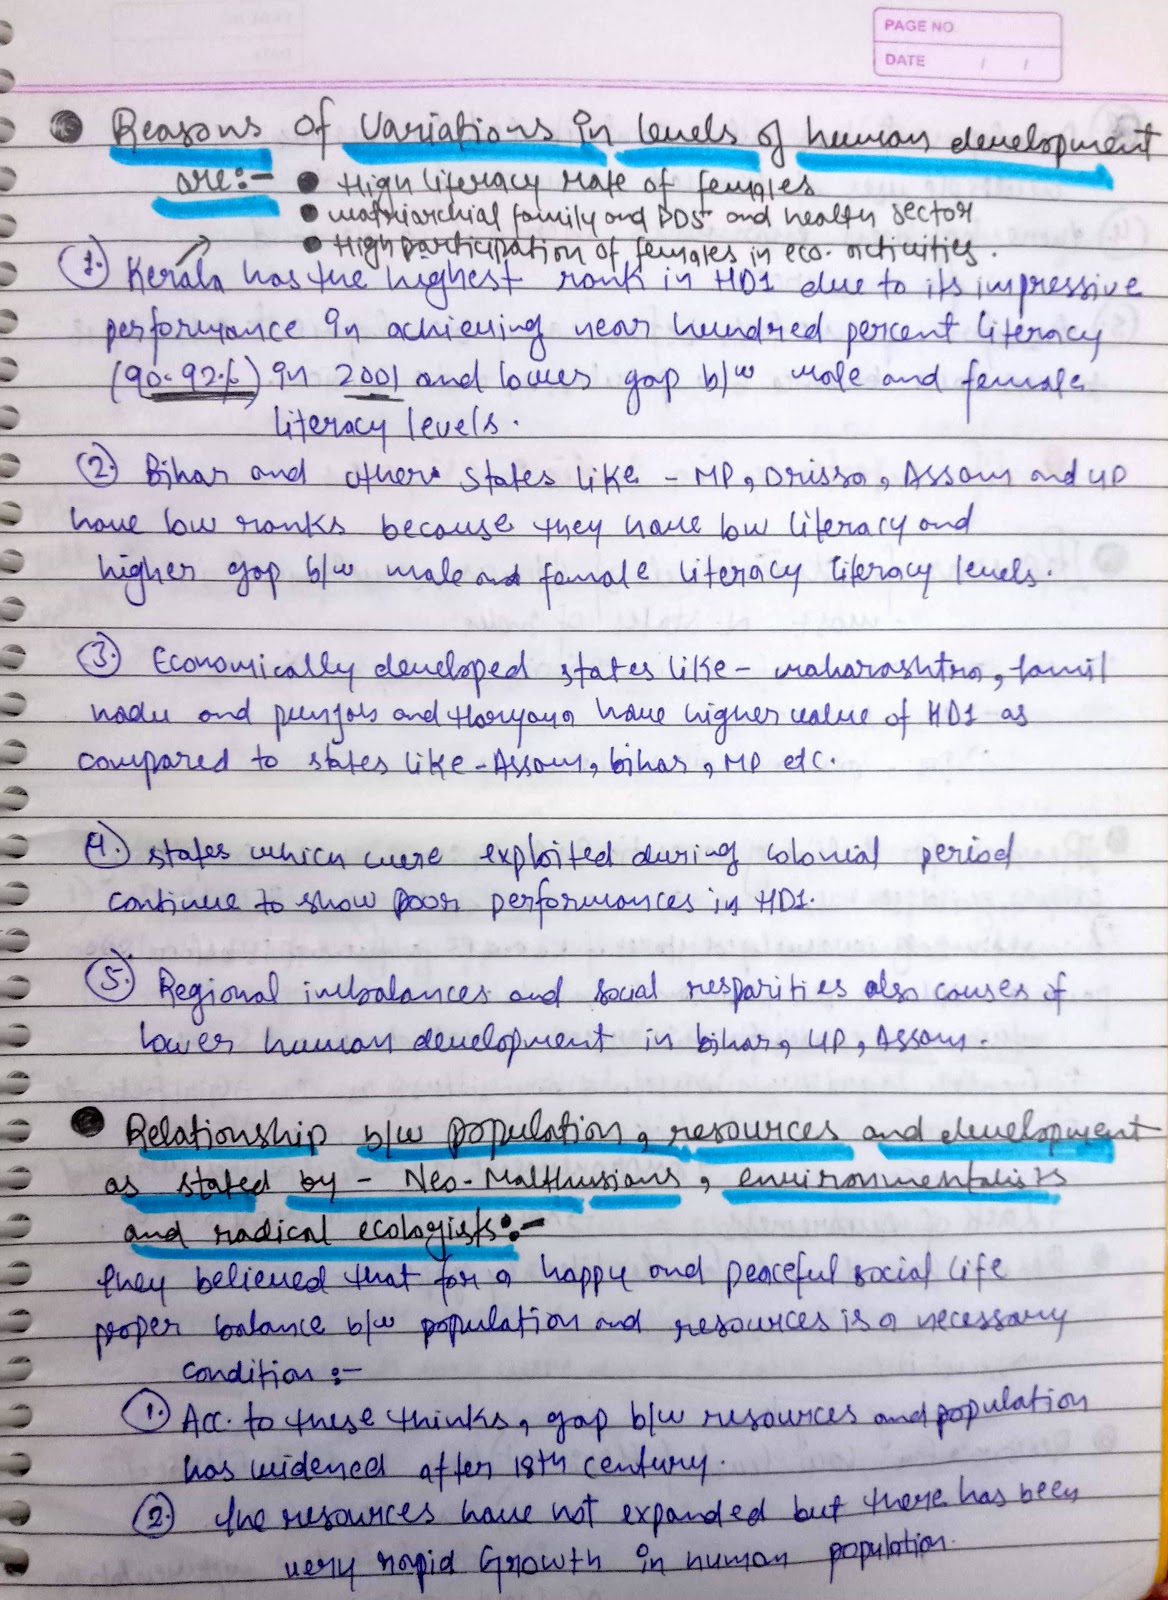 PAGE NO.
DATE / /
● Reasons of Variations in levels of human development
are:- ● High literacy rate of females
● matriarchial family and PDS and health sector
● High participation of females in eco. activities.
1. Kerala has the highest rank in HDI due to its impressive
performance in achieving near hundred percent literacy
(90.92%) in 2001 and lower gap b/w male and female
literacy levels.
2. Bihar and other states like - MP, Orissa, Assam and UP
have low ranks because they have low literacy and
higher gap b/w male and female literacy literacy levels.
3. Economically developed states like - maharashtra, tamil
nadu and punjab and Haryana have higher value of HDI as
compared to states like - Assam, bihar, MP etc.
4. states which were exploited during colonial period
continue to show poor performances in HDI.
5. Regional imbalances and social resparities also causes of
lower human development in bihar, UP, Assam.
● Relationship b/w population, resources and development
as stated by - Neo-Malthusians, environmentalists
and radical ecologists:-
they believed that for a happy and peaceful social life
proper balance b/w population and resources is a necessary
condition :-
1. Acc. to these thinks, gap b/w resources and population
has widened after 18th century.
2. the resources have not expanded but there has been
very rapid Growth in human population.